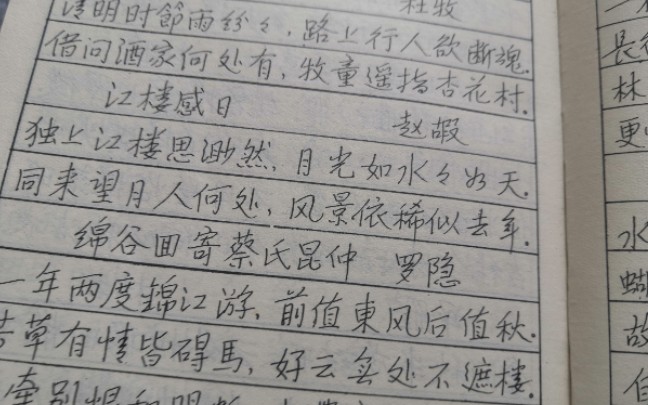 杜牧
清明时節雨紛々，路上行人欲断魂.
借问酒家何处有，牧童遥指杏花村.
江楼感日 赵嘏
独上江楼思渺然，月光如水々如天.
同来望月人何处，风景依稀似去年.
绵谷回寄蔡氏昆仲 罗隐
一年两度錦江游，前值東风后值秋.
芳草有情皆碍馬，好云无处不遮楼.
牵别恨和
长
林
更
水
蝴
故
自